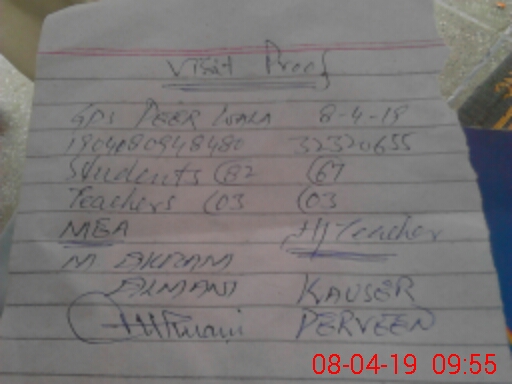 Visit Proof
GPS PEER WALA 8-4-19
1904180948480 32320655
Students (82 (67
Teachers (03 (03
MEA H/Teacher
M AKRAM
ALMANI KAUSER
PERVEEN
08-04-19 09:55